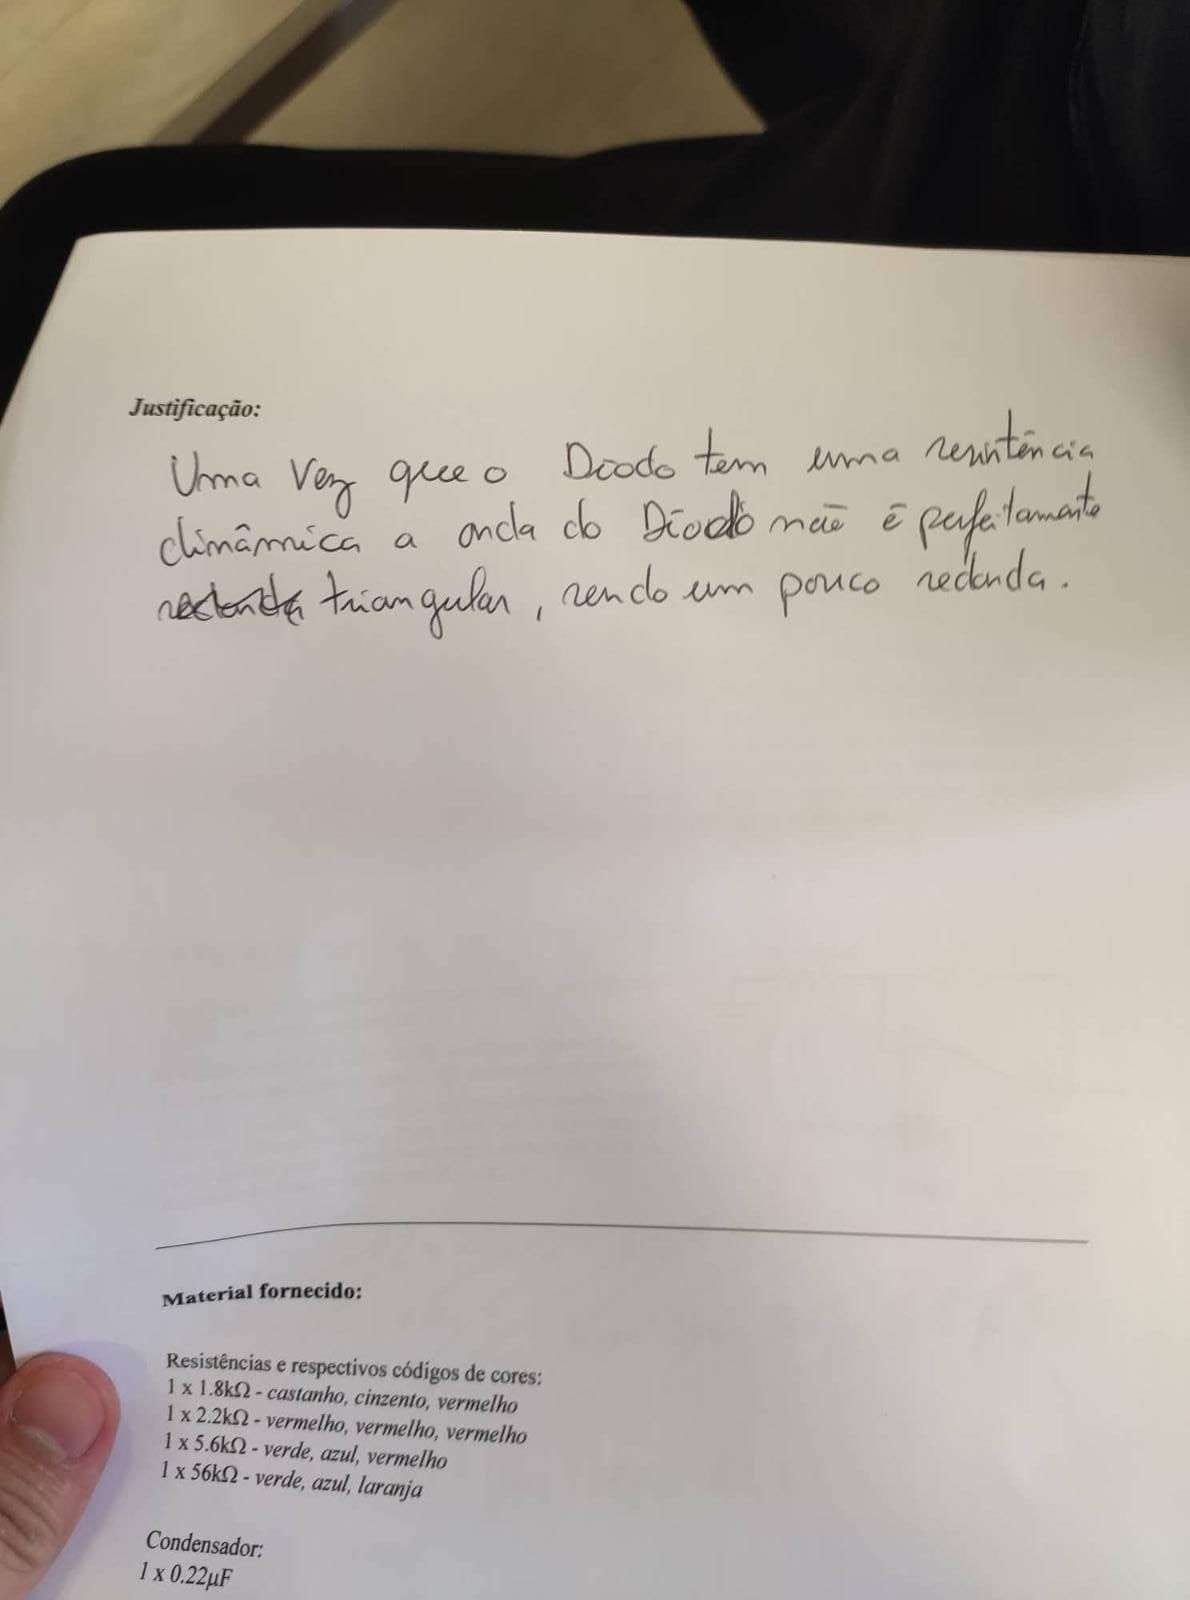 Justificação:
Uma vez que o Díodo tem uma resistência
dinâmica a onda do Díodo não é perfeitamente
redonda triangular, sendo um pouco redonda.
Material fornecido:
Resistências e respectivos códigos de cores:
1 x 1.8kΩ - castanho, cinzento, vermelho
1 x 2.2kΩ - vermelho, vermelho, vermelho
1 x 5.6kΩ - verde, azul, vermelho
1 x 56kΩ - verde, azul, laranja
Condensador:
1 x 0.22µF